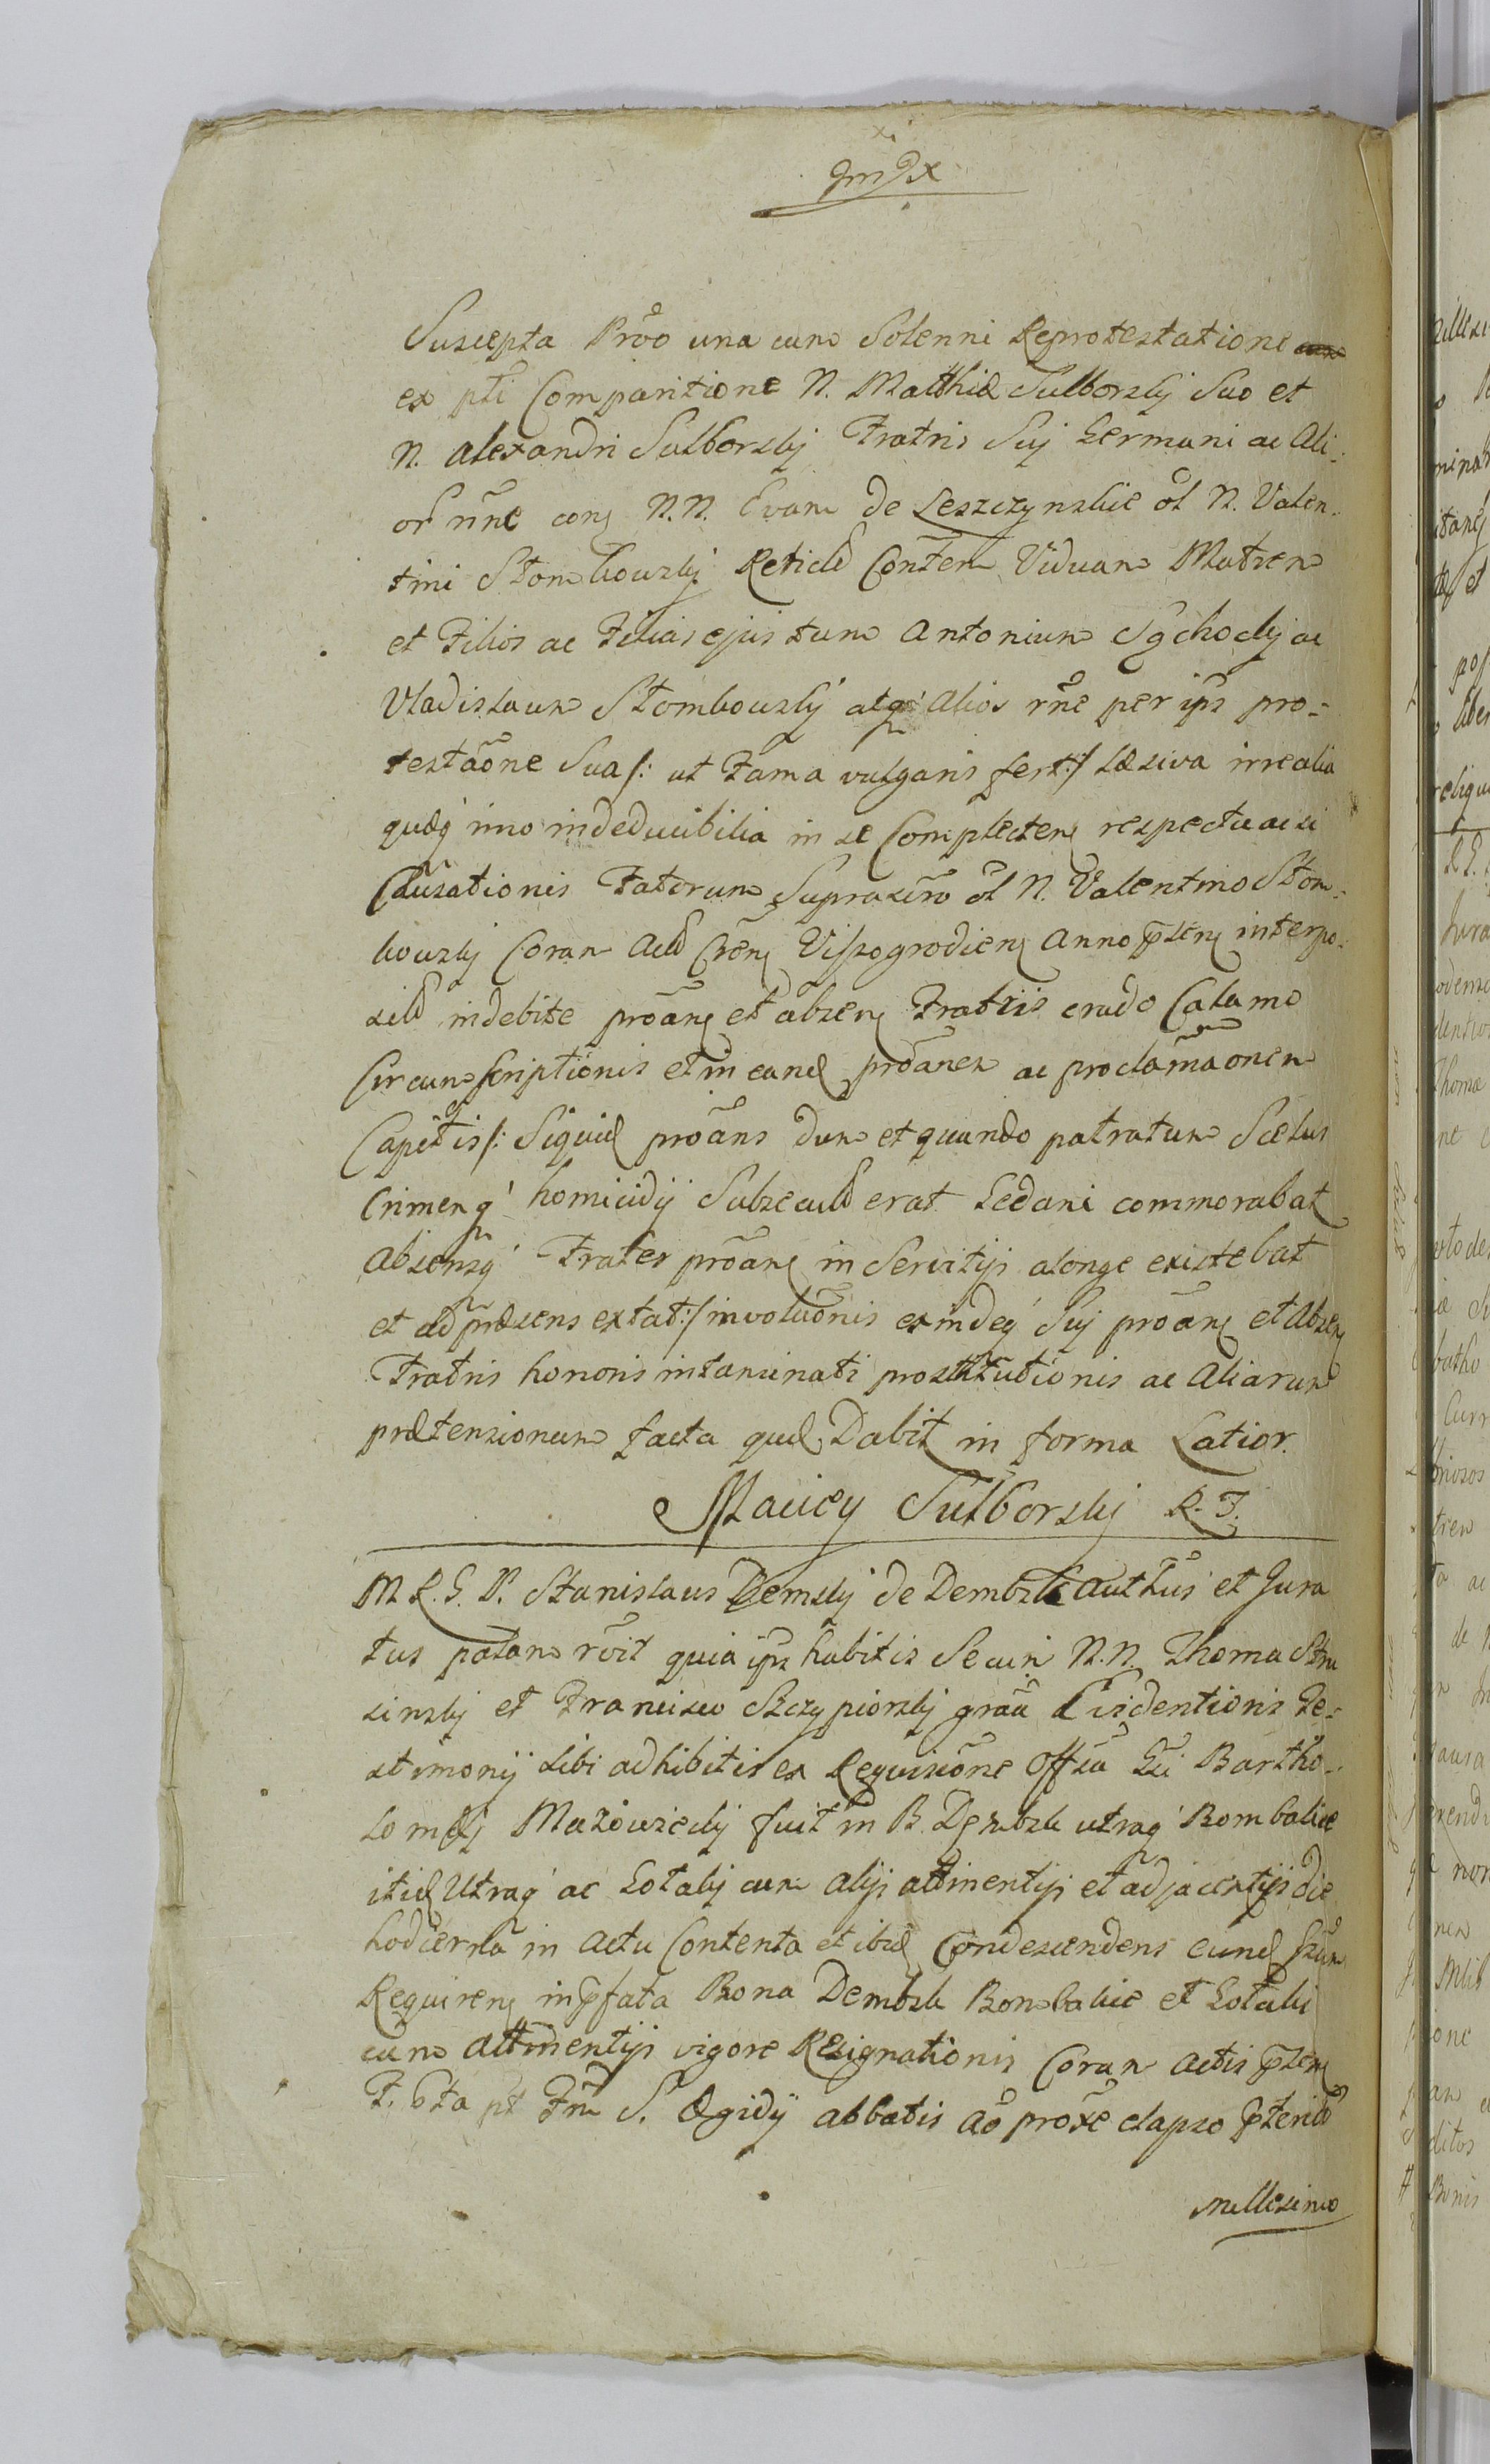 Suscepta Prõo una cum Solenni Reprotestatione
ex pti Comparitione N. Matthiæ Sulborskij Suo et
N. Alexandri Sulborskij Fratris Suj Germani ac Ali-
or nñe con N.N. Evam de Leszczynskie ol N. Valen-
tini Stombowskij Relictã Conten Viduam Matrem
et Filios ac Filias ejus tum Antonium Sychockij ac
Vladislaum Stombowskij atq alios rñe per ips pro-
testãone Sua /: ut Fama vulgaris fert :/ læsiva irrealia
quæq imo indeducibilia in se Complecten respectu ac si
Causationis Fatorum Suprascro ol N. Valentino Stom-
bowskij Coram Act Cren Viszogrodien Anno psen interpo-
sit indebite proãn et absen Fratris crudo Calamo
Circumscriptionis et in eand proãnem ac proclamãonem
Capitis /: Siquid proãns dum et quando patratum Scelus
Crimenq homicidij Subsecut erat Gedani commorabat
Absensq Frater proãn in Servitijs a longe existebat
et ad præsens extat :/ involuõnis exindeq Suj proãn et Absen
Fratris honoris intaminati prostitutionis ac Aliarum
prætensionum facta quæ Dabit in forma Latior.
Maciey Sulborskij R. T.
M L. G. P. Stanislaus Demskij de Dembsk Authus et Jura
tus palam rõit quia ips habitis Secum N.N. Thoma Stru
sinskij et Francisco Szczypiorskij grãa Evidentioris Te-
stimonij sibi adhibitis ex Requisiõne Offsa Gsi Bartho-
lomæj Mazowieckij fuit in B. Dembsk utraq Bombalice
itid Utraq ac Gotalij cum alijs attinentijs et adjacentijs die
hodierna in actu Contenta et ibid Condescendens eund Gsum
Requiren in pfata Bona Dembsk Bombalice et Gotalij
cum attinentijs vigore Resignationis Coram actis psen
F. bta pt Fm S. Ægidij abbatis aõ prõxe elapso pterit
millesimo